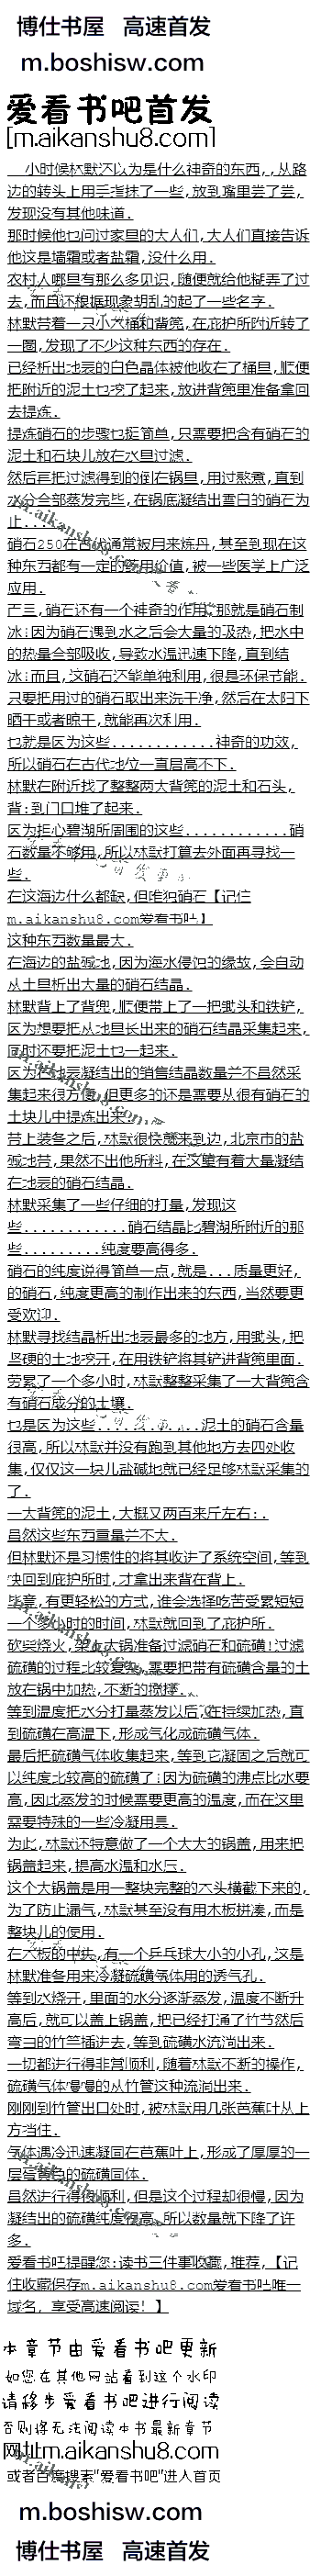 博仕书屋 高速首发
m.boshisw.com
爱看书吧首发
[m.aikanshu8.com]
小时候林默还以为是什么神奇的东西,,从路
边的砖头上用手指抹了一些,放到嘴里尝了尝,
发现没有其他味道.
那时候他也问过家里的大人们,大人们直接告诉
他这是墙霜或者盐霜,没什么用.
农村人哪里有那么多见识,随便就给他糊弄了过
去,而且还根据现象胡乱的起了一些名字.
林默带着一只小木桶和背篼,在庇护所附近转了
一圈,发现了不少这种东西的存在.
已经析出地表的白色晶体被他收在了桶里,顺便
把附近的泥土也挖了起来,放进背篼里准备拿回
去提炼.
提炼硝石的步骤也挺简单,只需要把含有硝石的
泥土和石块儿放在水里过滤.
然后再把过滤得到的倒在锅里,用过熬煮,直到
水分全部蒸发完毕,在锅底凝结出雪白的硝石为
止....
硝石250在古代通常被用来炼丹,甚至到现在这
种东西都有一定的药用价值,被一些医学上广泛
应用.
而且,硝石还有一个神奇的作用,那就是硝石制
冰!因为硝石遇到水之后会大量的吸热,把水中
的热量全部吸收,导致水温迅速下降,直到结
冰!而且,这硝石还能单独利用,很是环保节能.
只要把用过的硝石取出来洗干净,然后在太阳下
晒干或者晾干,就能再次利用.
也就是因为这些............神奇的功效,
所以硝石在古代地位一直居高不下.
林默在附近找了整整两大背篼的泥土和石头,
背:到门口堆了起来.
因为担心碧湖所周围的这些............硝
石数量不够用,所以林默打算去外面再寻找一
些.
在这海边什么都缺,但唯独硝石【记住
m.aikanshu8.com爱看书吧】
这种东西数量最大.
在海边的盐碱地,因为海水侵蚀的缘故,会自动
从土里析出大量的硝石结晶.
林默背上了背兜,顺便带上了一把锄头和铁铲,
因为想要把从地里长出来的硝石结晶采集起来,
同时还要把泥土也一起来.
因为在地表凝结出的销售结晶数量并不虽然采
集起来很方便,但更多的还是需要从很有硝石的
土块儿中提炼出来.
带上装备之后,林默很快就来到边,北京市的盐
碱地带,果然不出他所料,在这里有着大量凝结
在地表的硝石结晶.
林默采集了一些仔细的打量,发现这
些............硝石结晶比碧湖所附近的那
些.........纯度要高得多.
硝石的纯度说得简单一点,就是...质量更好,
的硝石,纯度更高的制作出来的东西,当然要更
受欢迎.
林默寻找结晶析出地表最多的地方,用锄头,把
坚硬的土地挖开,在用铁铲将其铲进背篼里面.
劳累了一个多小时,林默整整采集了一大背篼含
有硝石成分的土壤.
也是因为这些............泥土的硝石含量
很高,所以林默并没有跑到其他地方去四处收
集,仅仅这一块儿盐碱地就已经足够林默采集的
了.
一大背篼的泥土,大概又两百来斤左右:.
虽然这些东西重量并不大.
但林默还是习惯性的将其收进了系统空间,等到
快回到庇护所时,才拿出来背在背上.
毕竟,有更轻松的方式,谁会选择吃苦受累短短
一个多小时的时间,林默就回到了庇护所.
砍柴烧火,架起大锅准备过滤硝石和硫磺!过滤
硫磺的过程比较复杂,需要把带有硫磺含量的土
放在锅中加热,不断的搅拌.
等到温度把水分打量蒸发以后,在持续加热,直
到硫磺在高温下,形成气化成硫磺气体.
最后把硫磺气体收集起来,等到它凝固之后就可
以纯度比较高的硫磺了!因为硫磺的沸点比水要
高,因此蒸发的时候需要更高的温度,而在这里
需要特殊的一些冷凝用具.
为此,林默还特意做了一个大大的锅盖,用来把
锅盖起来,提高水温和水压.
这个大锅盖是用一整块完整的木头横截下来的,
为了防止漏气,林默甚至没有用木板拼凑,而是
整块儿的使用.
在木板的中央,有一个乒乓球大小的小孔,这是
林默准备用来冷凝硫磺气体用的透气孔.
等到水烧开,里面的水分逐渐蒸发,温度不断升
高后,就可以盖上锅盖,把已经打通了竹节然后
弯曲的竹竿插进去,等到硫磺水流淌出来.
一切都进行得非常顺利,随着林默不断的操作,
硫磺气体慢慢的从竹管这种流淌出来.
刚刚到竹管出口处时,被林默用几张芭蕉叶从上
方挡住.
气体遇冷迅速凝固在芭蕉叶上,形成了厚厚的一
层雪黄色的硫磺固体.
虽然进行得很顺利,但是这个过程却很慢,因为
凝结出的硫磺纯度很高,所以数量就下降了许
多.
爱看书吧提醒您:读书三件事收藏,推荐,【记
住收藏保存m.aikanshu8.com爱看书吧唯一
域名，享受高速阅读！】
本章节由爱看书吧更新
如您在其他网站看到这个水印
请移步爱看书吧进行阅读
否则将无法阅读本书最新章节
网址m.aikanshu8.com
或者百度搜索"爱看书吧"进入首页
m.boshisw.com
博仕书屋 高速首发